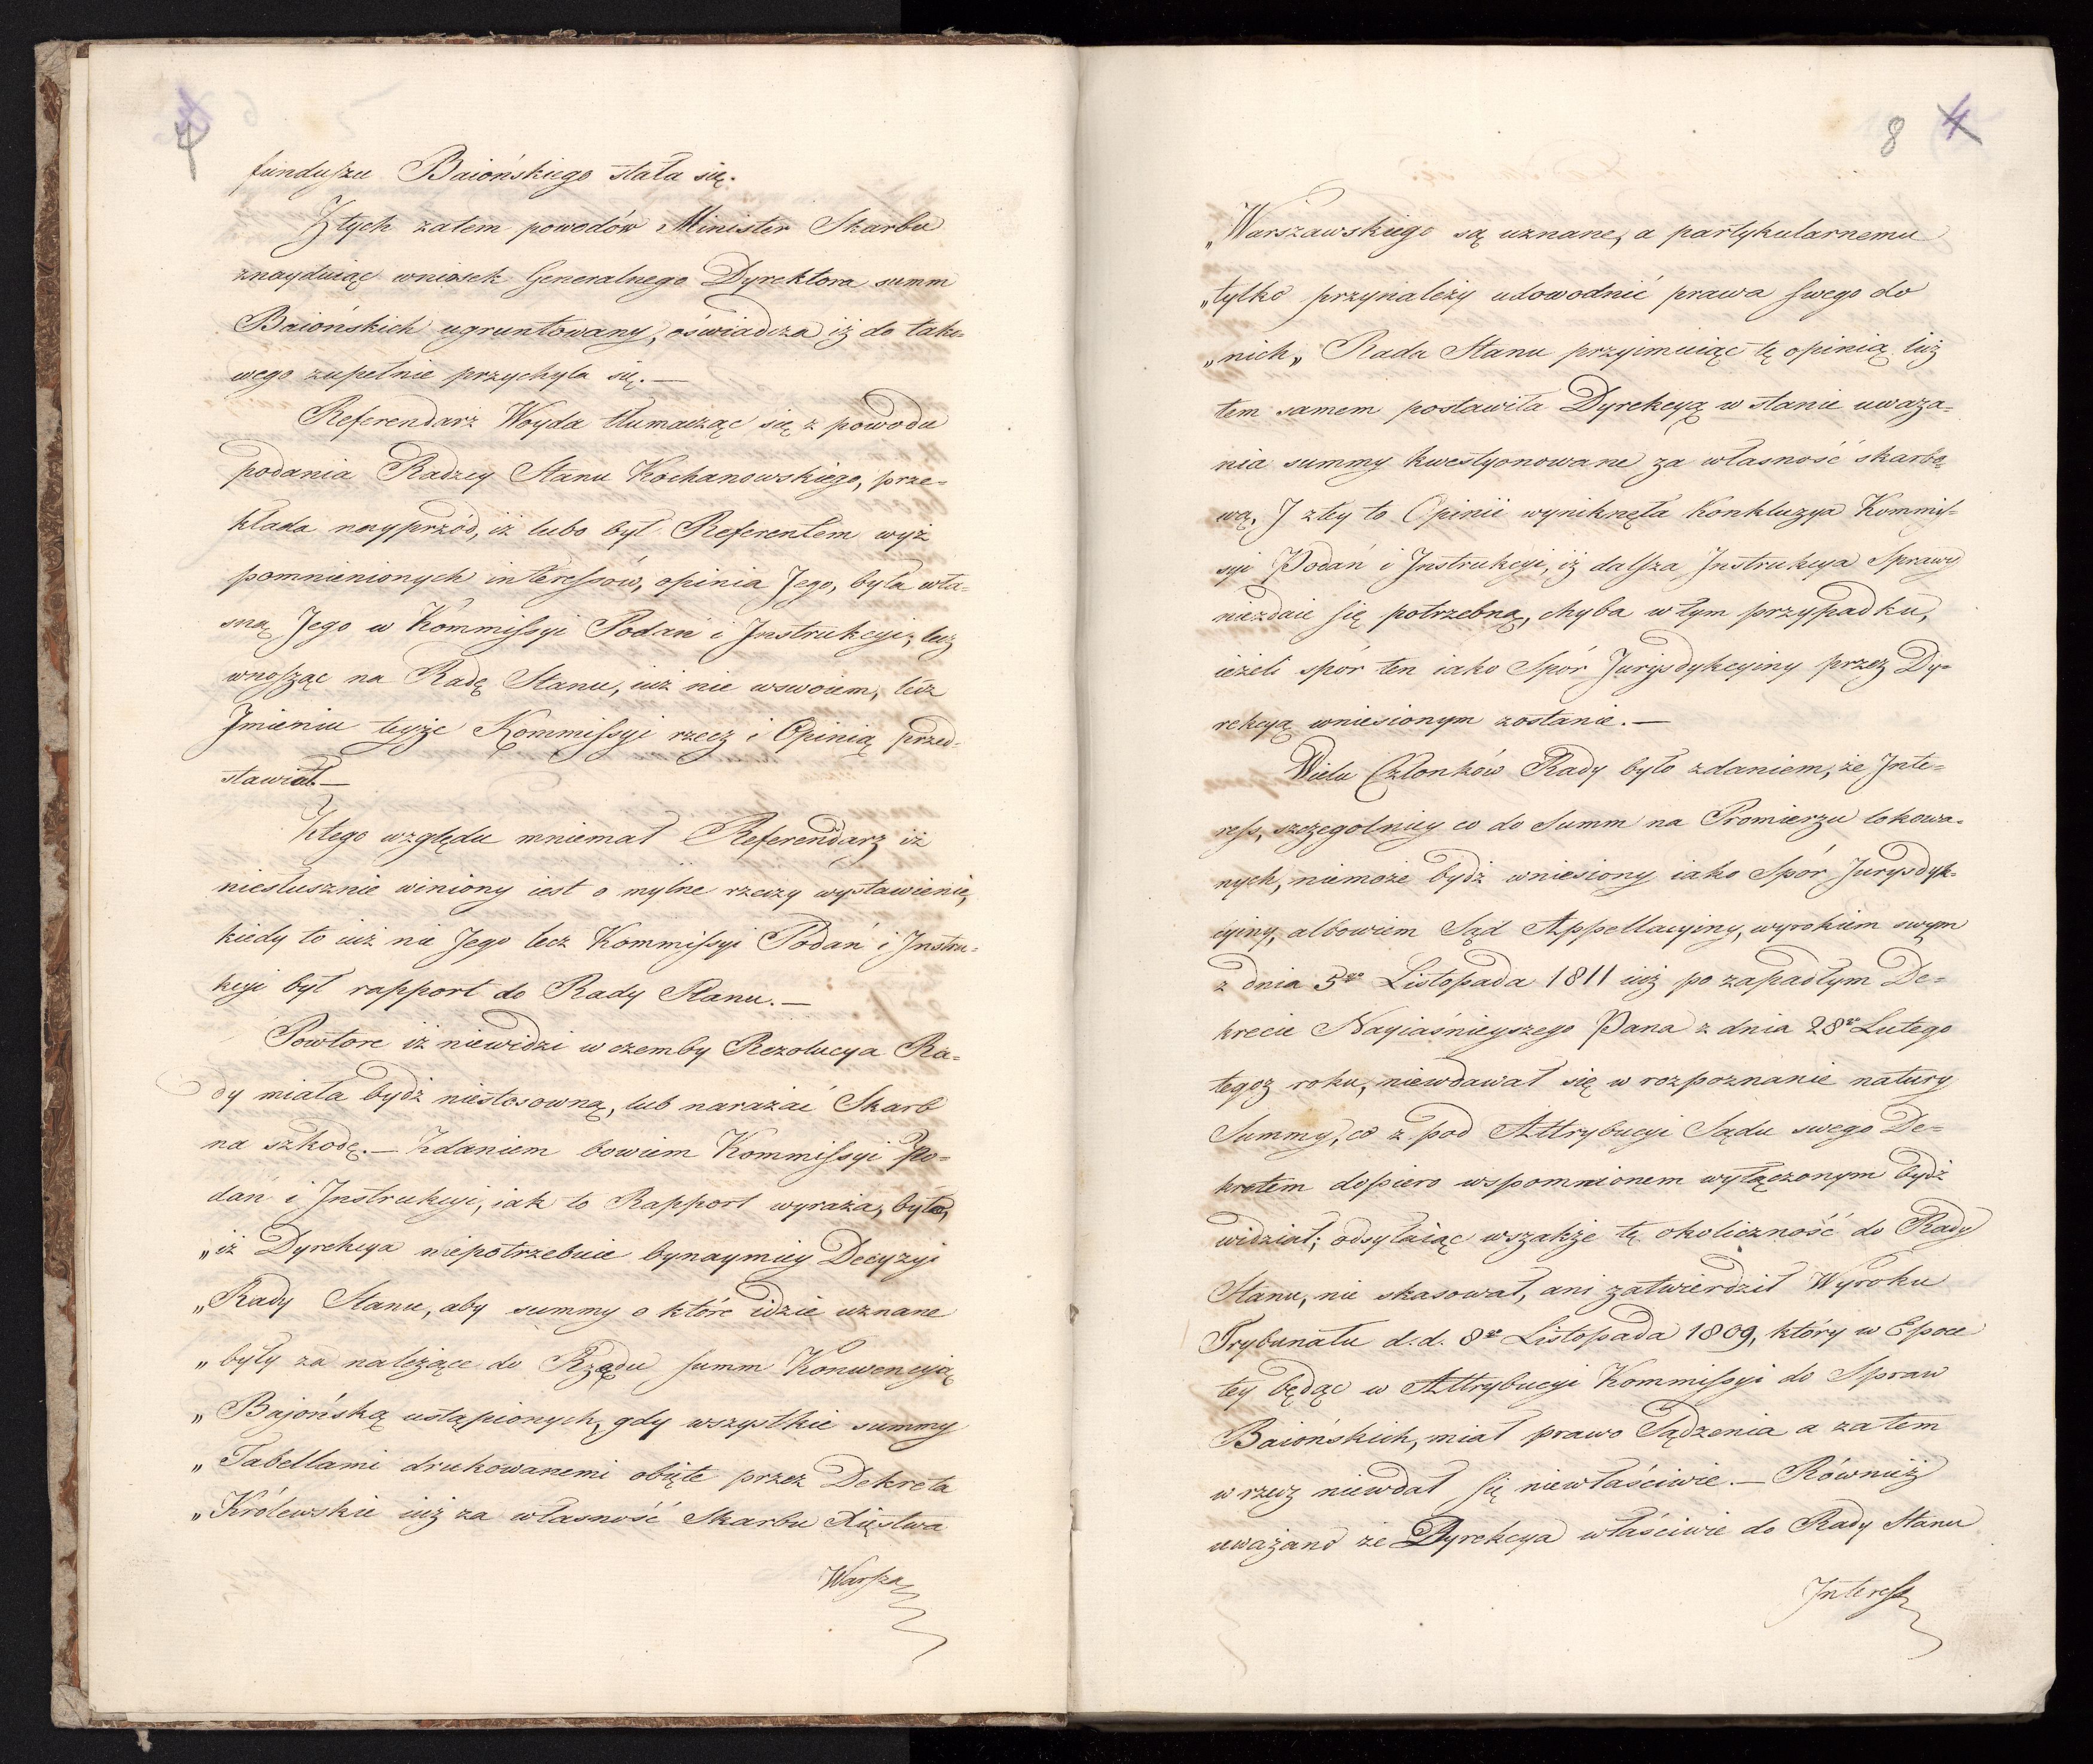 4
funduszu Baiońskiego stała się.
Z tych zatem powodów Minister Skarbu
znayduiąc wniosek Generalnego Dyrektora summ
Baiońskich ugruntowany, oświadcza iż do tako-
wego zupełnie przychyla się. —
Referendarz Woyda tłumacząc się z powodu
podania Radzcy Stanu Kochanowskiego, prze-
kłada nayprzód, iż lubo był Referentem wyż
pomnienionych interessów, opinia Jego, była wła-
sną Jego w Kommissyi Podań i Instrukcyi, lecz
wnosząc na Radę Stanu, iuż nie wswoiem, lecz
Imieniu teyże Kommissyi rzecz i Opinią przed-
stawiał. —
Z tego względu mniemał Referendarz iż
niesłusznie winiony iest o mylne rzeczy wystawienie,
kiedy to iuż nie Jego lecz Kommissyi Podań i Instru-
kcyi był rapport do Rady Stanu. —
Powtore iż niewidzi w czemby Rezolucya Ra-
dy miała bydź niestosowną, lub narażać Skarb
na szkodę. — Zdaniem bowiem Kommissyi Po-
dań i Instrukcyi, iak to Rapport wyraża, było,
„iż Dyrekcya niepotrzebuie bynaymniey Decyzyi
„Rady Stanu, aby summy o które idzie uznane
„były za należące do Rządu summ Konwencyią
„Bajońską ustąpionych, gdy wszystkie summy
„Tabellami drukowanemi obięte przez Dekreta
„Królewskie iuż za własność Skarbu Xięstwa
Warsza
8 4
„Warszawskiego są uznane, a partykularnemu
„tylko przynależy udowodnić prawa swego do
„nich„ Rada Stanu przyimuiąc tę opinią iuż
tem samem postawiła Dyrekcyą w stanie uważa-
nia summy kwestyonowane za własność skarbo-
wą. I z tey to Opinii wyniknęła konkluzya Kommis-
syi Podań i Instrukcyi, iż dalsza Instrukcya Sprawy
niezdaie się potrzebną, chyba w tym przypadku,
ieżeli spór ten iako Spór Jurysdykcyiny przez Dy-
rekcyą wniesionym zostanie. —
Wielu Członków Rady było zdaniem, że Inte-
ress, szczegolniey co do Summ na Promierzu lokowa-
nych, niemoże bydź wniesiony iako Spór Jurysdyk-
cyiny, albowiem Sąd Appellacyiny, wyrokiem swym
z dnia 5go Listopada 1811 iuż po zapadłym De-
krecie Nayiaśnieyszego Pana z dnia 28go Lutego
tegoż roku, niewdawał się w rozpoznanie natury
Summy, co z pod Attrybucyi Sądu swego De-
kretem dopiero wspomnionem wyłączonym bydź
widział; odsyłaiąc wszakże tę okoliczność do Rady
Stanu, nie skasował, ani zatwierdził Wyroku
Trybunału d. d. 8go Listopada 1809, który w Epoce
tey będąc w Attrybucyi Kommissyi do Spraw
Baiońskich, miał prawo Sądzenia a zatem
w rzecz niewdał się niewłaściwie. — Również
uważano że Dyrekcya właściwie do Rady Stanu
Interess